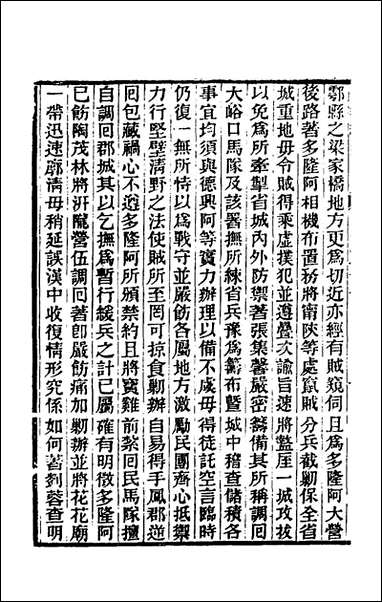 鄠縣之梁家橋地方更爲切近亦經有賊窺伺且爲多隆阿大營
後路著多隆阿相機布置務將南陝等處竄賊分兵截剿保全省
城重地毋令賊得乘虛撲犯並遵疊次諭旨速將盩厔一城攻拔
以免爲所牽掣省城內外防禦著張集馨嚴密籌備其所稱調回
大峪口馬隊及該署撫所練省兵豫爲籌布暨城中稽查儲積各
事宜均須與德興阿等實力辦理以備不虞毋得徒託空言臨時
仍復一無所恃以爲戰守並嚴飭各屬地方激勵民團齊心抵禦
力行堅壁清野之法使賊所至罔可掠食剿辦自易得手鳳郡逆
回包藏禍心不遵多隆阿所頒禁約且將竄雞前紮回民馬隊擅
自調回郡城其以乞撫爲暫行緩兵之計已屬確有明徵多隆阿
已飭陶茂林將汧隴營伍調回著卽嚴飭痛加剿辦並將花花廟
一帶迅速廓清毋稍延誤漢中收復情形究係如何著劉蓉查明